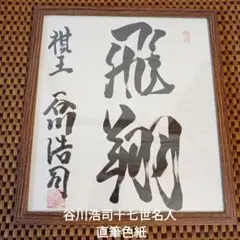 飛翔
棋王 谷川浩司
谷川浩司十七世名人
直筆色紙